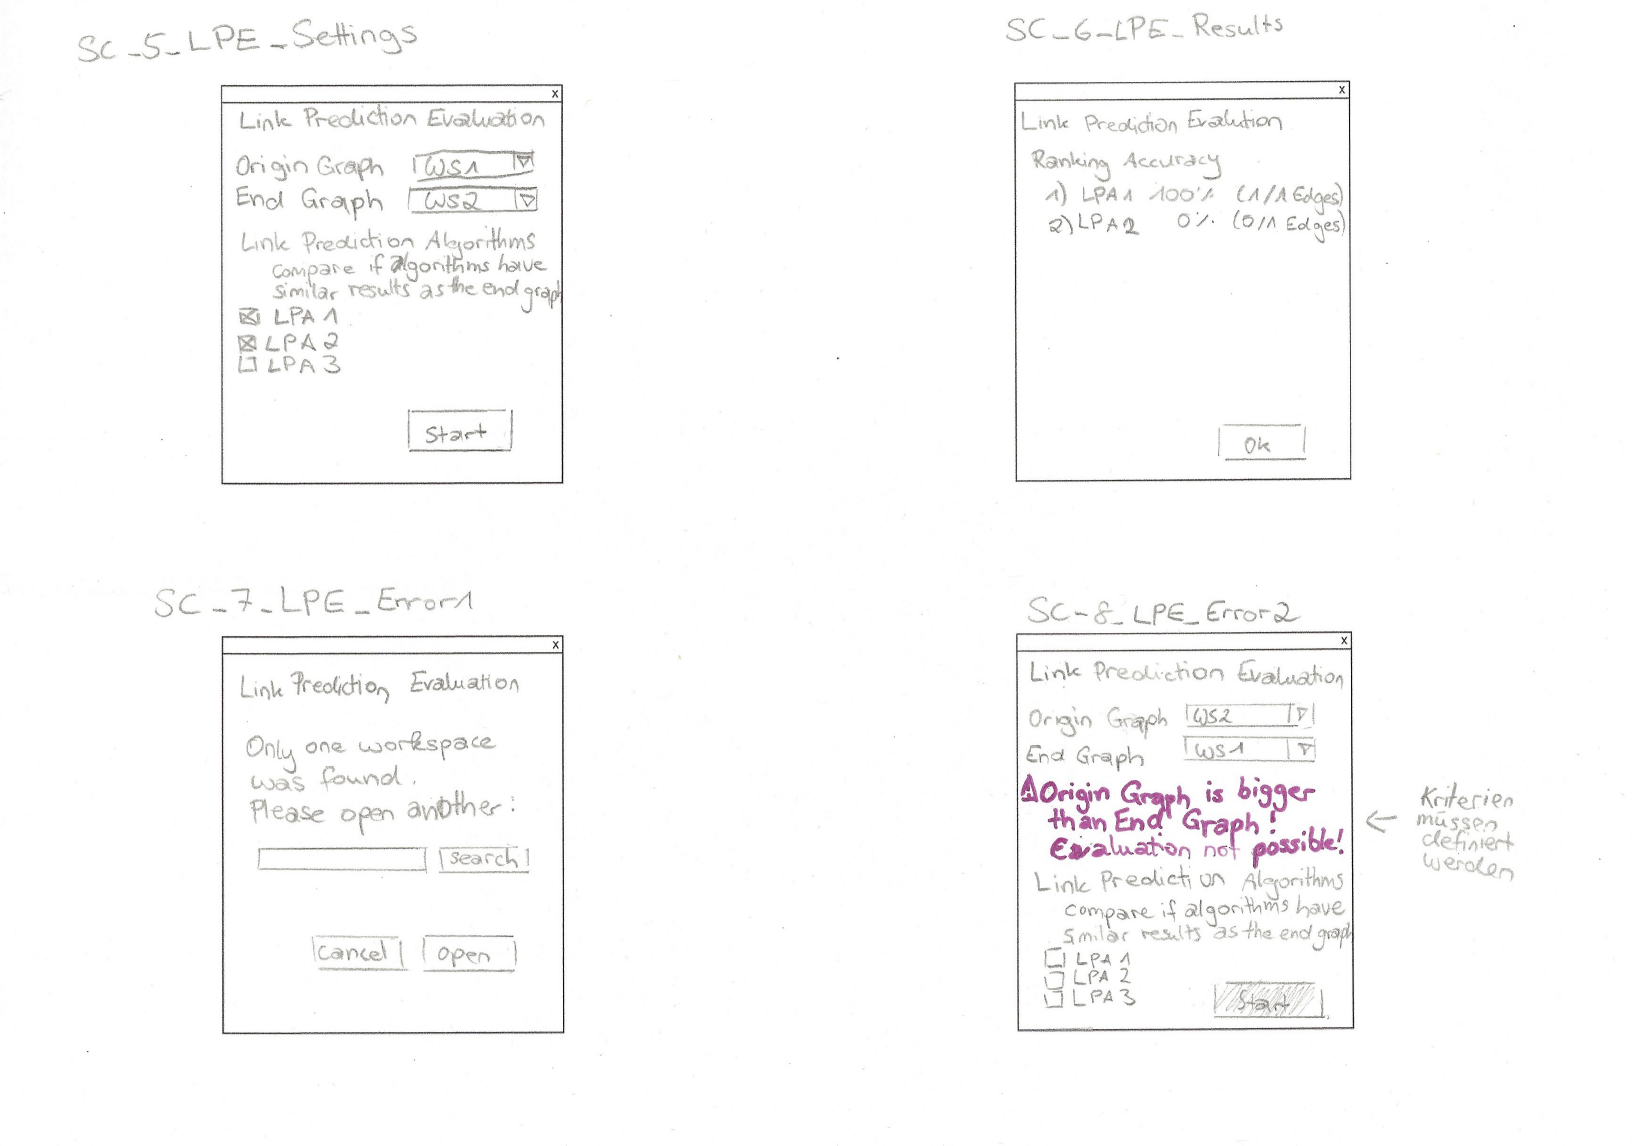 SC_5_LPE_Settings
x
Link Prediction Evaluation
Origin Graph WS1
End Graph WS2
Link Prediction Algorithms
compare if algorithms have
similar results as the end graph
LPA 1
LPA 2
LPA 3
Start
SC_6_LPE_Results
x
Link Prediction Evalution
Ranking Accuracy
1) LPA1 100% (1/1 Edges)
2) LPA2 0% (0/1 Edges)
Ok
SC_7_LPE_Error1
x
Link Prediction Evaluation
Only one workspace
was found.
Please open another:
search
cancel open
SC-8_LPE_Error2
x
Link Prediction Evaluation
Origin Graph WS2
End Graph WS1
Origin Graph is bigger
than End Graph!
Evaluation not possible!
Link Prediction Algorithms
compare if algorithms have
similar results as the end graph
LPA 1
LPA 2
LPA 3
Start
Kriterien
müssen
definiert
werden